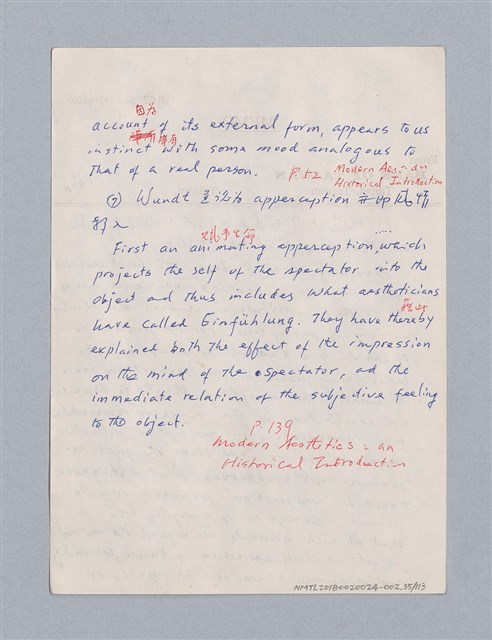 因为
account of its external form, appears to us
instinct with some mood analogous to
that of a real person. P.52 Modern Aes.: an
Historical Introduction
⑦ Wundt apperception 移情
First an animating apperception, which
projects the self of the spectator into the
object and thus includes what aestheticians
have called Einfühlung. They have thereby
explained both the effect of the impression
on the mind of the spectator, ad the
immediate relation of the subjective feeling
to the object.
P 139
Modern Aesthetics: an
Historical Introduction
NMTL20180020024-002_35/113